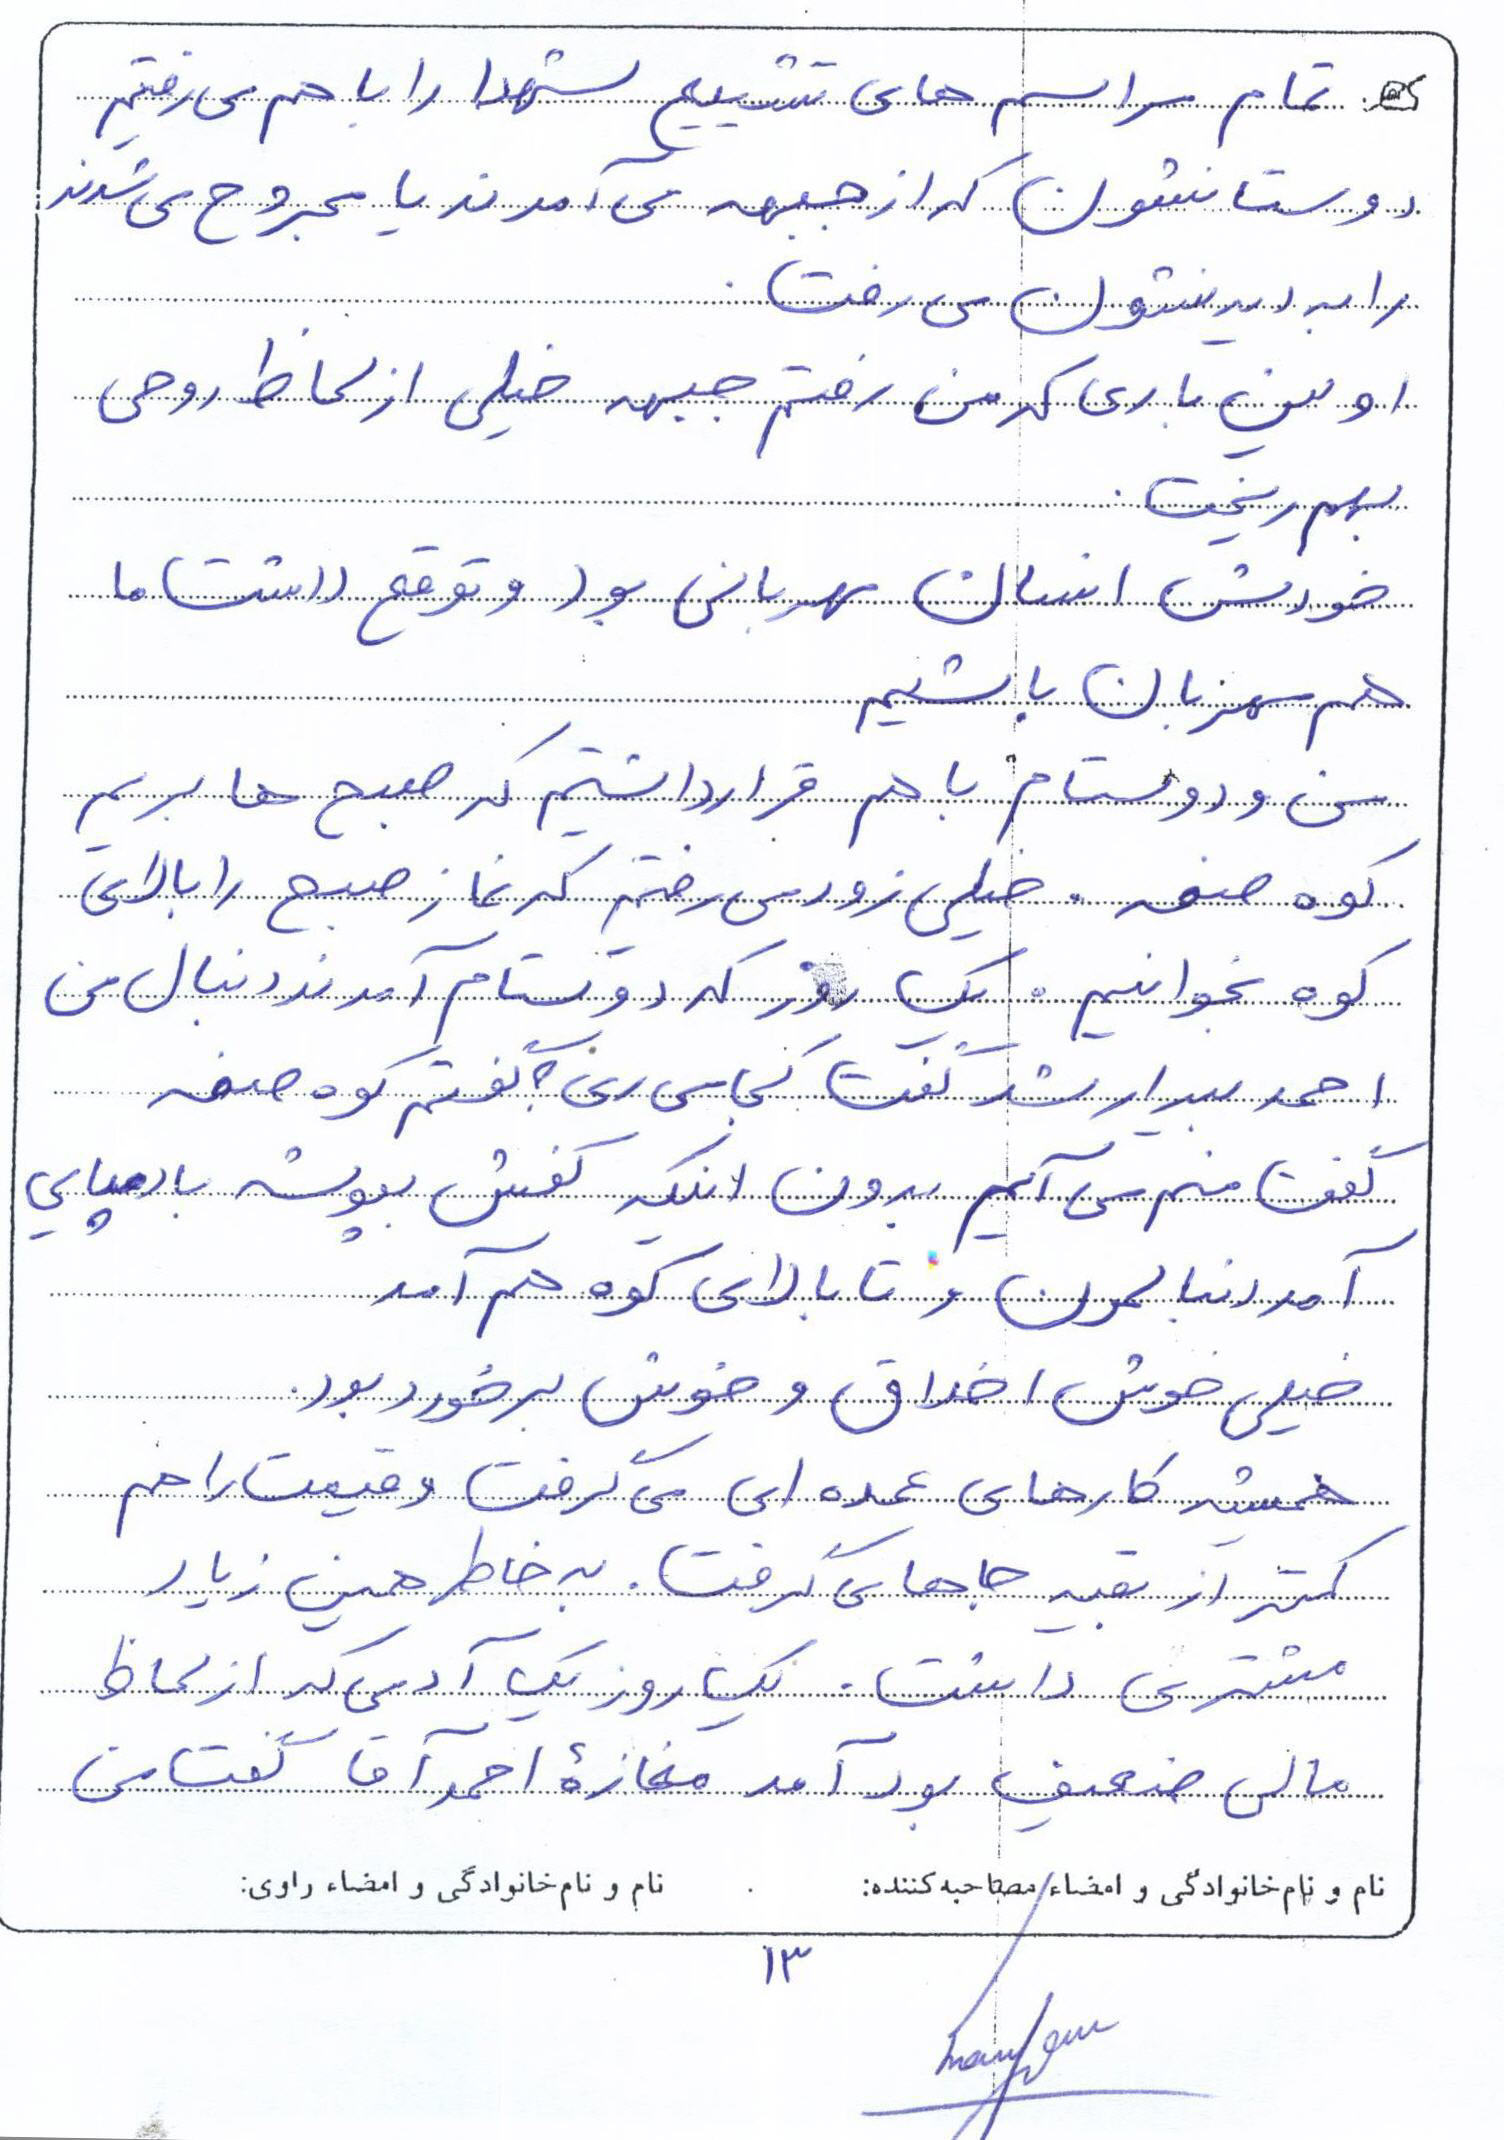 تمام مراسم های تشییع شهدا را با هم می رفتیم
دوستانشون که از جبهه می آمدند یا مجروح می شدند
را به دیدنشون می رفت.
اولین باری که من رفتم جبهه خیلی از لحاظ روحی
بهم ریخت.
خودش انسان مهربانی بود و توقع داشت ما
هم مهربان باشیم
من و دوستام با هم قرار داشتیم که صبح ها بریم
کوه صفه . خیلی زود می رفتیم که نماز صبح را بالای
کوه بخوانیم . یک روز که دوستام آمدند دنبال من
احمد بیدار شد گفت کجا می ری؟ گفتم کوه صفه
گفت منم می آیم بدون اینکه کفش بپوشه با دمپایی
آمد دنبالمون و تا بالای کوه هم آمد
خیلی خوش اخلاق و خوش برخورد بود.
همیشه کارهای عمده ای می گرفت و قیمت را هم
کمتر از بقیه جاها می گرفت. به خاطر همین زیاد
مشتری داشت. یک روز یک آدمی که از لحاظ
مالی ضعیف بود آمد مغازهٔ احمد آقا گفت من
نام و نام خانوادگی و امضاء مصاحبه کننده:
نام و نام خانوادگی و امضاء راوی:
۱۳